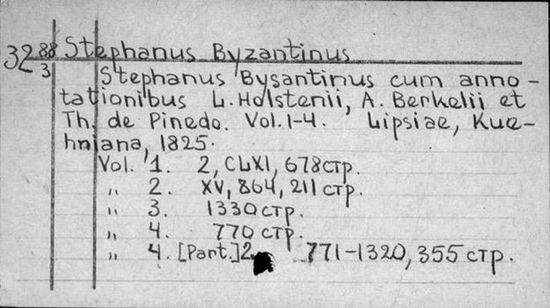 32 88/3
Stephanus Byzantinus
Stephanus Bysantinus cum anno-
tationibus L. Holstenii, A. Berkelii et
Th. de Pinedo. Vol. 1-4. Lipsiae, Kue-
hniana, 1825.
Vol. 1. 2, CLXI, 678 стр.
„ 2. XV, 864, 211 стр.
„ 3. 1330 стр.
„ 4. 770 стр.
„ 4. [Part.] 2 771-1320, 355 стр.